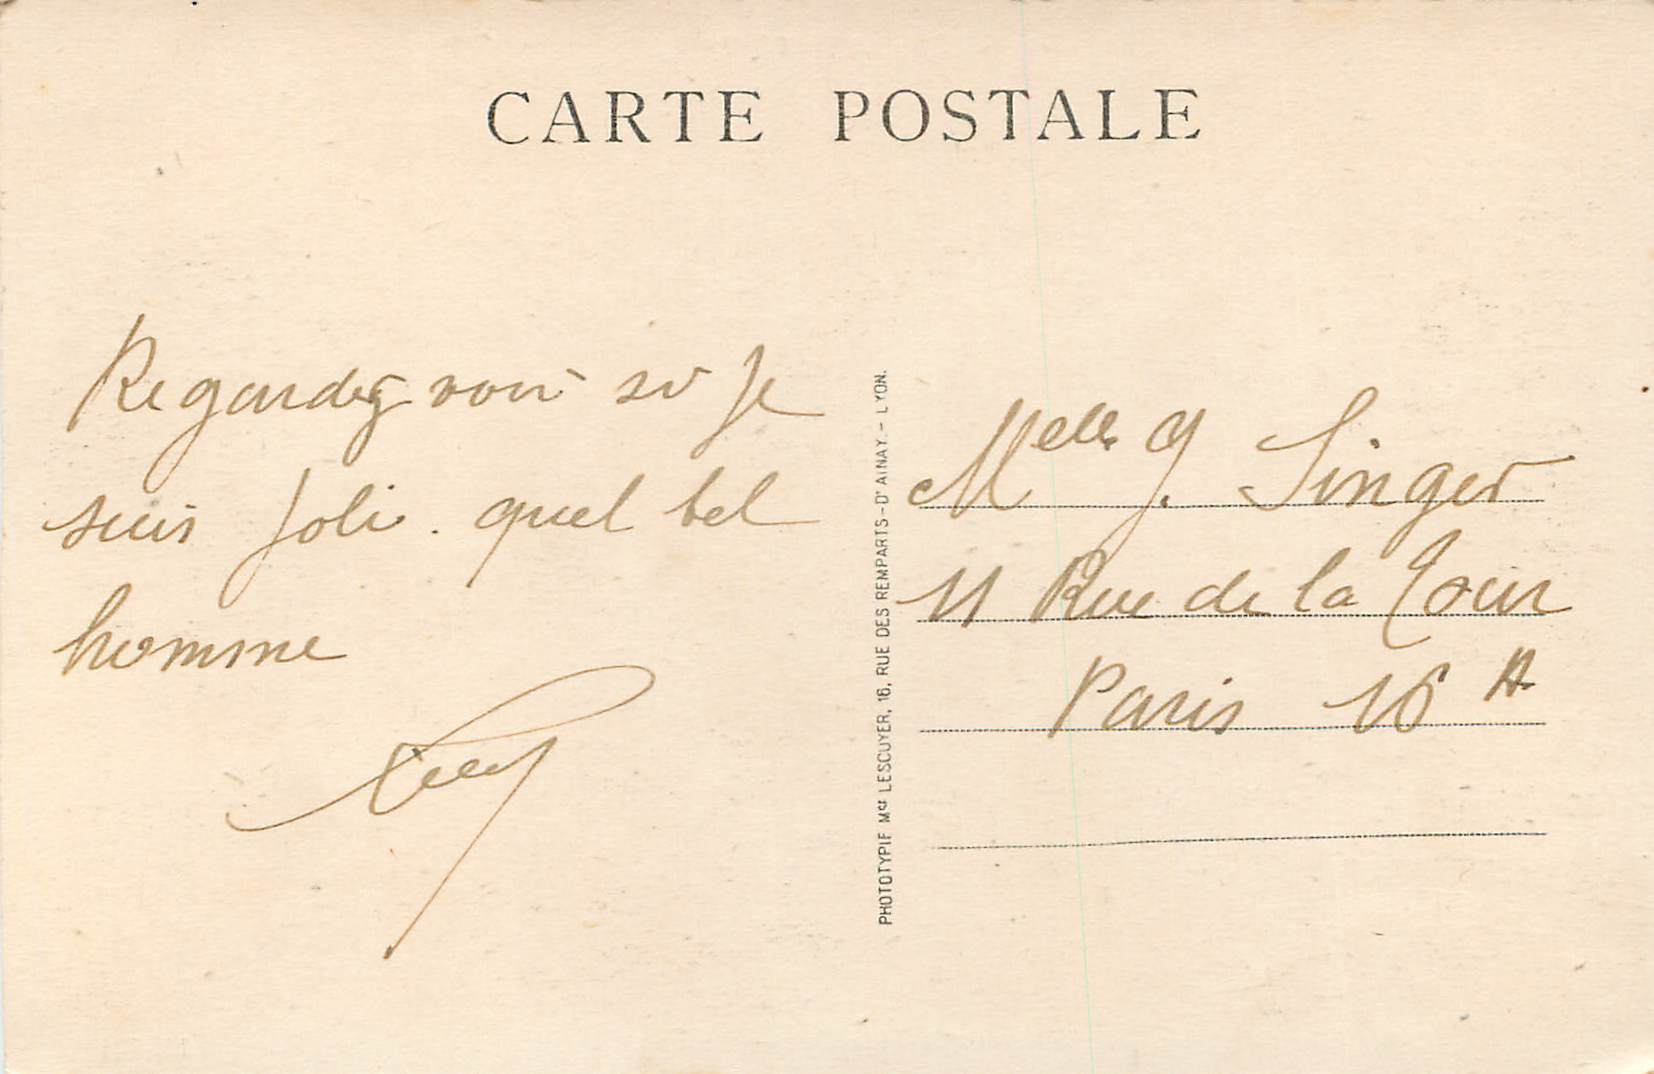 CARTE POSTALE
Regardez voir si je
suis Joli. quel bel
homme
Melle Y. Singer
11 Rue de la Tour
Paris 16
PHOTOTYPIE Mce LESCUYER, 16, RUE DES REMPARTS-D'AINAY. - LYON.